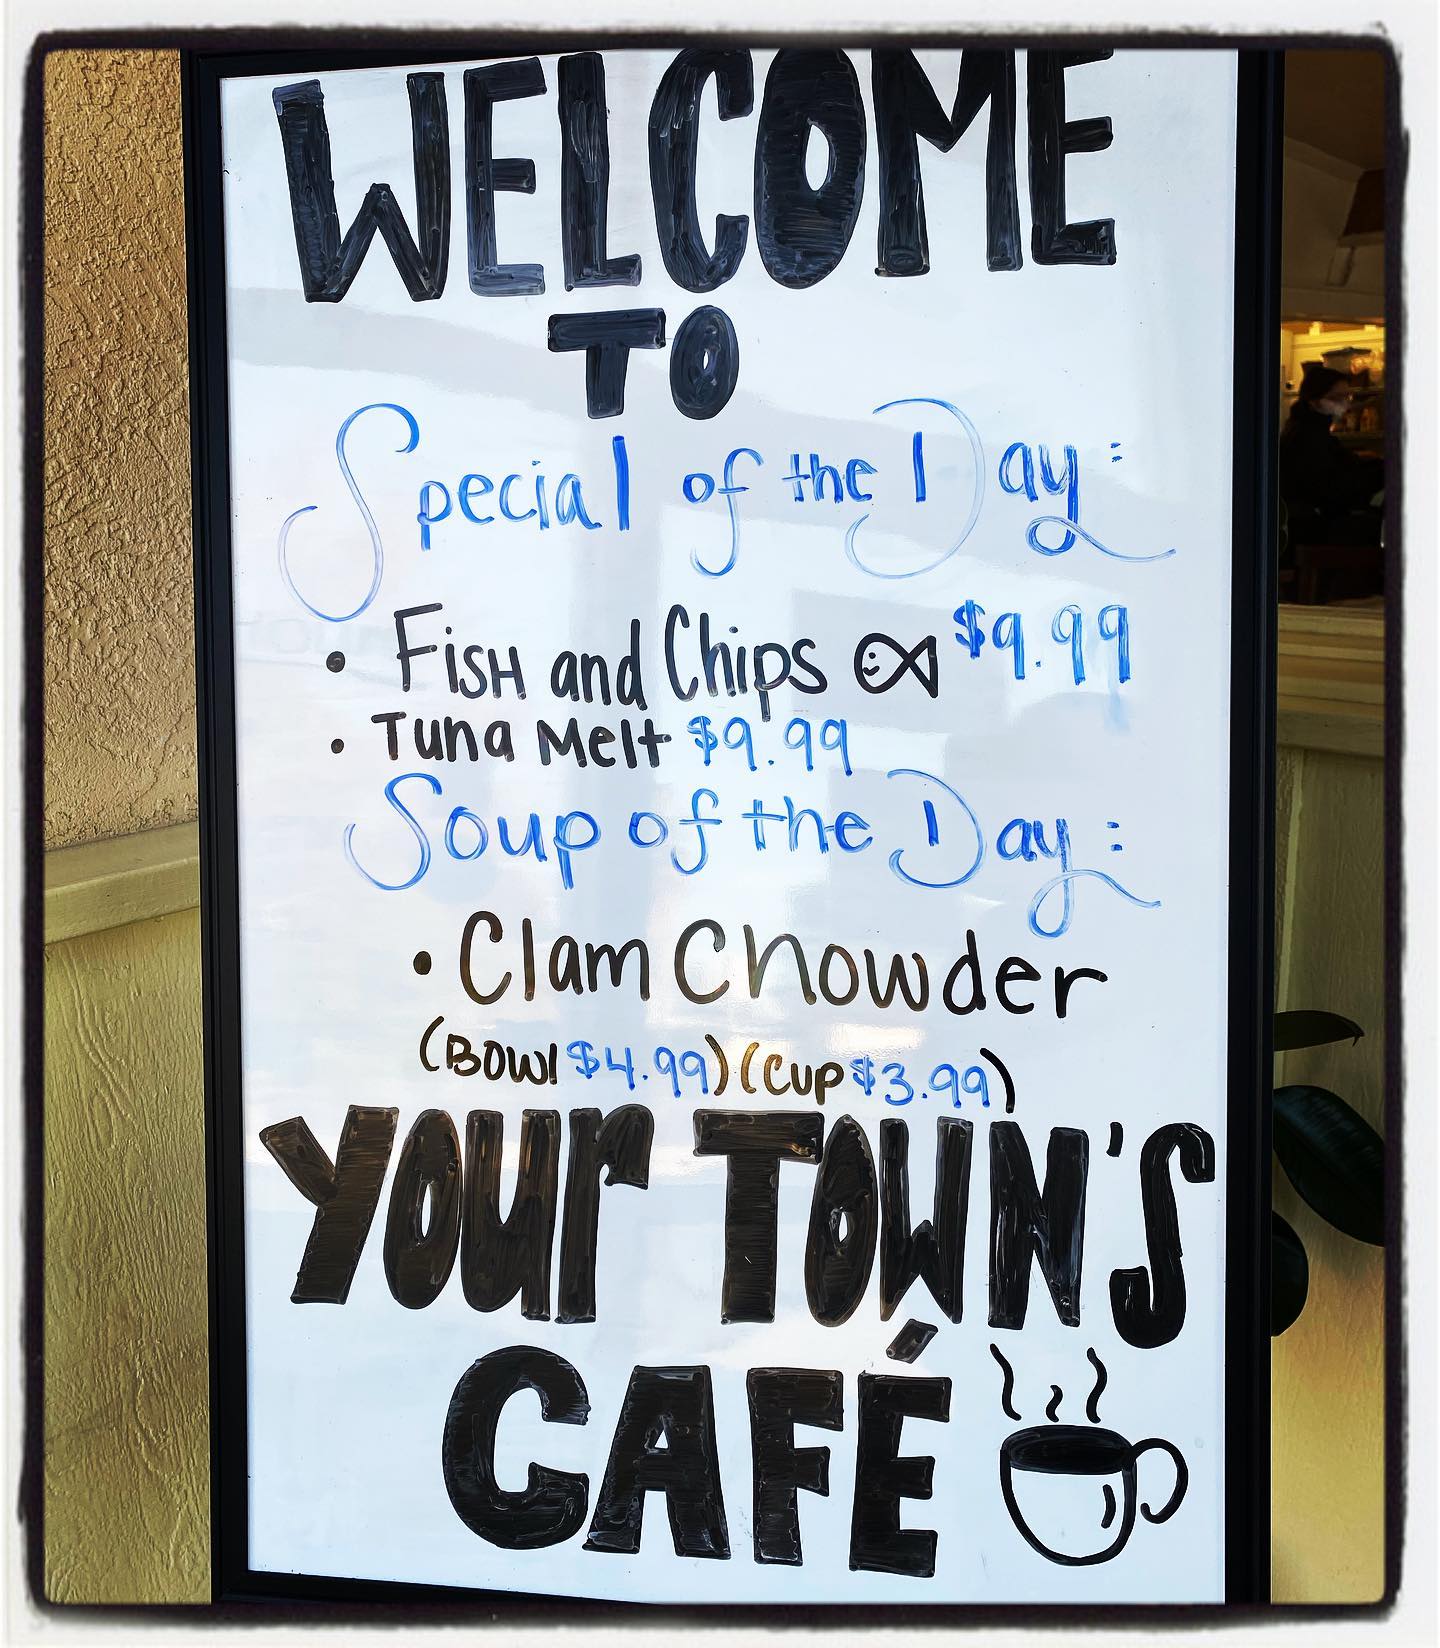 WELCOME
TO
Special of the Day:
• FisH and Chips $9.99
• Tuna Melt $9.99
Soup of the Day:
• Clam Chowder
(Bowl $4.99) (Cup $3.99)
Your TOWN'S
CAFÉ